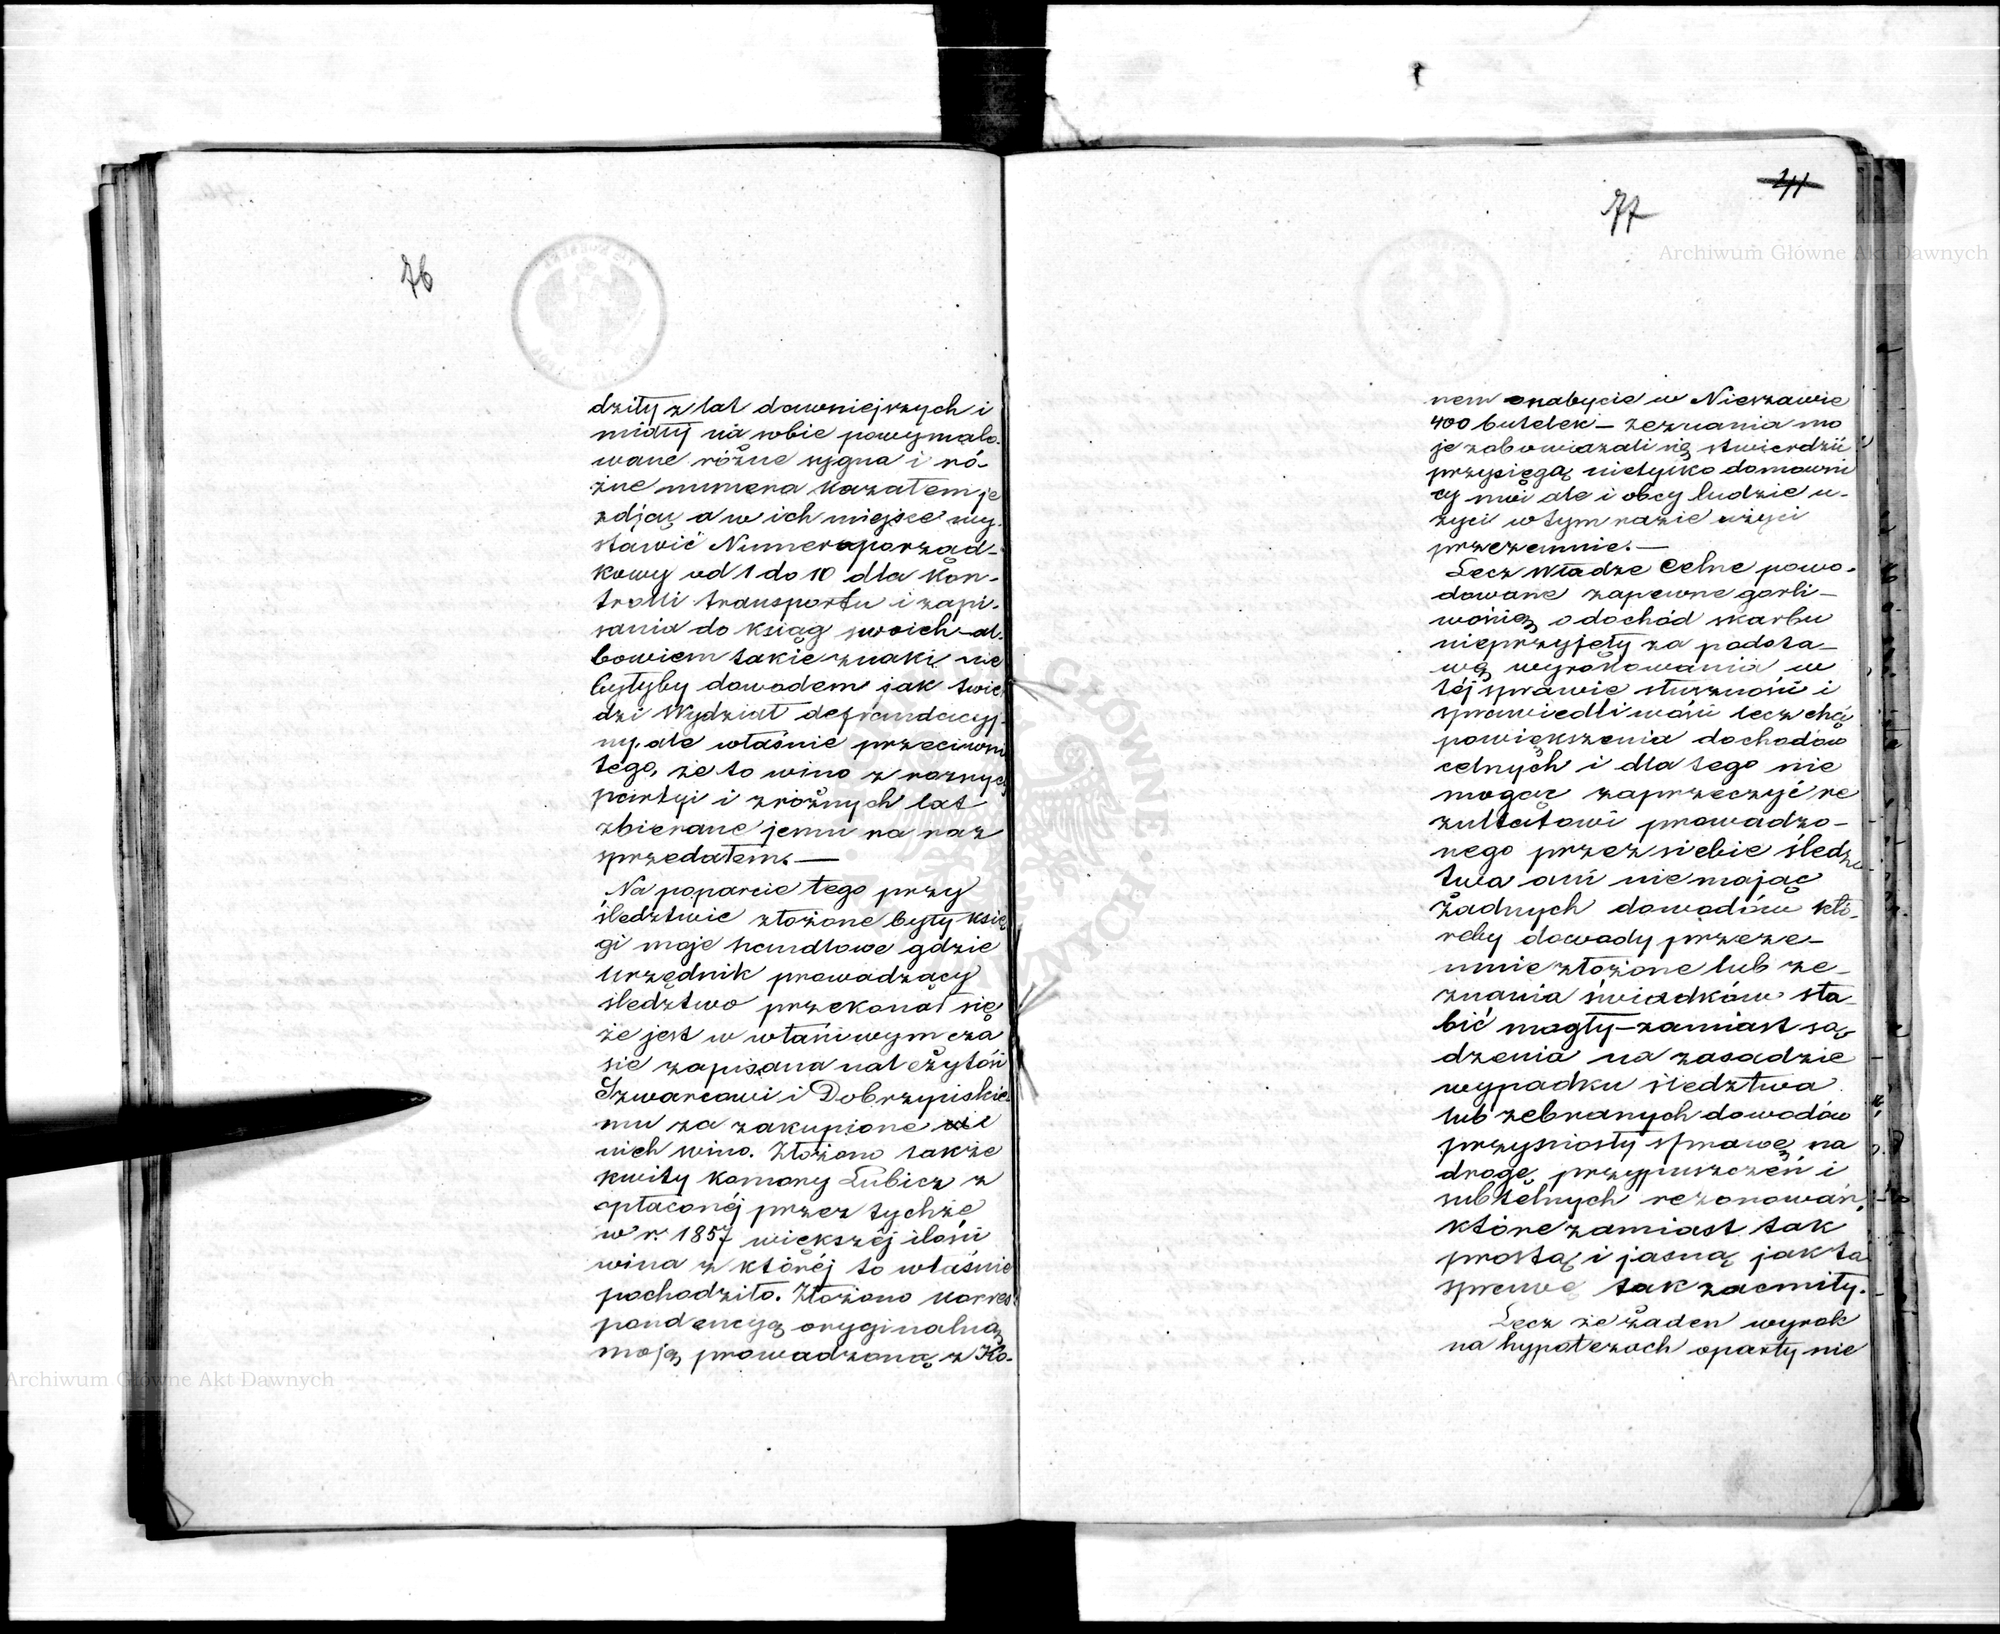 76
dziły z lat dawniejszych i
miały na sobie powymalo-
wane różne sygna i ró-
żne numera kazałem je
zdjąć a w ich miejsce wy-
stawić Numera porząd-
kowy od 1 do 10 dla kon-
trolli transportu i zapi-
sania do ksiąg swoich - al-
bowiem takie znaki nie
byłyby dowodem jak twier
dzi Wydział defraudacyj-
ny, ale właśnie przeciwni
tego, że to wino z roznych
partyi i z różnych lat
zbierane jemu na raz
sprzedałem. —
Na poparcie tego przy
śledztwie złożone były księ
gi moje handlowe gdzie
urzędnik prowadzący
śledztwo przekonał się
że jest w właściwym cza
sie zapisana należytość
Szwarcowi i Dobrzyńskie
mu za zakupione
nich wino. Złożono także
kwity Komory Lubicz z
opłaconéj przez tychże
w r. 1857 większéj ilości
wina z któréj to właśnie
pochodziło. Złożono korres
pondencyą oryginalną
moją prowadzoną z Ko-
77
Archiwum Główne Akt Dawnych
nem o nabycie w Nieszawie
400 butelek - zeznania mo
je zobowiązali się stwierdzić
przysięgą nietylko domowni
cy moi ale i obcy ludzie u-
życi w tym razie użyci
przezemnie. —
Lecz Władze Celne powo-
dowane zapewne gorli-
wością o dochód skarbu
nieprzyjęły za podsta-
wę wyrokowania w
téj sprawie słuszności i
sprawiedliwości lecz chęć
powiększenia dochodów
celnych i dla tego nie
mogąc zaprzeczyć re
zultatowi prowadzo-
nego przez siebie śledz
twa ani nie mając
żadnych dowodów któ-
reby dowody przeze-
mnie złożone lub ze-
znania świadków sła-
bić mogły - zamiast są-
dzenia na zasadzie
wypadku śledztwa
lub zebranych dowodów
przyniosły sprawę na
drogę przypuszczeń i
subtelnych rezonowań,
które zamiast tak
prostą i jasną jak ta
sprawę tak zaćmiły.
Lecz że żaden wyrok
na hypotezach oparty nie
Archiwum Główne Akt Dawnych